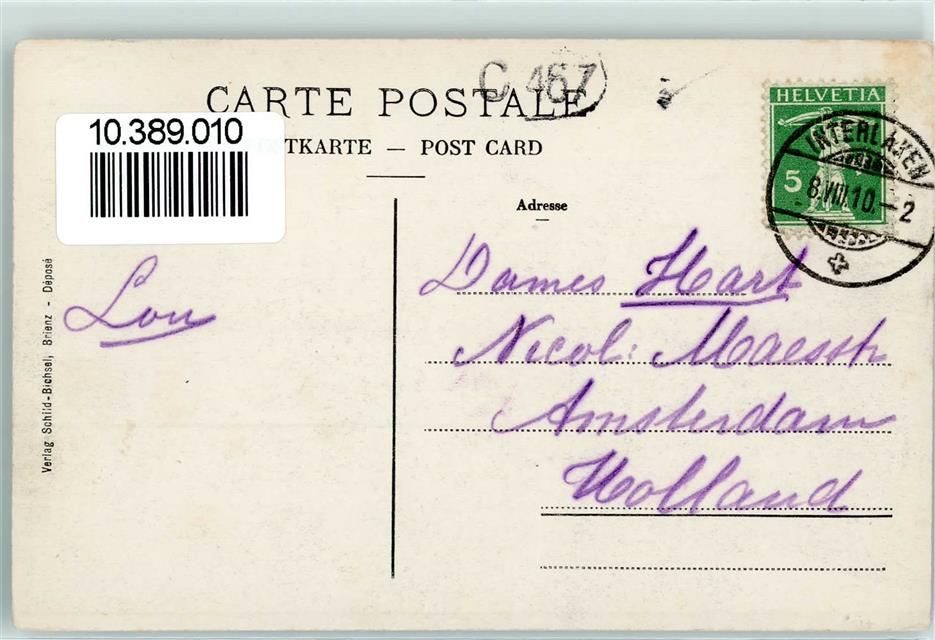 C 457
CARTE POSTALE
10.389.010
TKARTE — POST CARD
HELVETIA
5
INTERLAKEN
8.VIII.10.–2
Adresse
Lou
Dames Hart
Nicol: Maesstr
Amsterdam
Holland
Verlag Schild-Bichsel, Brienz - Déposé